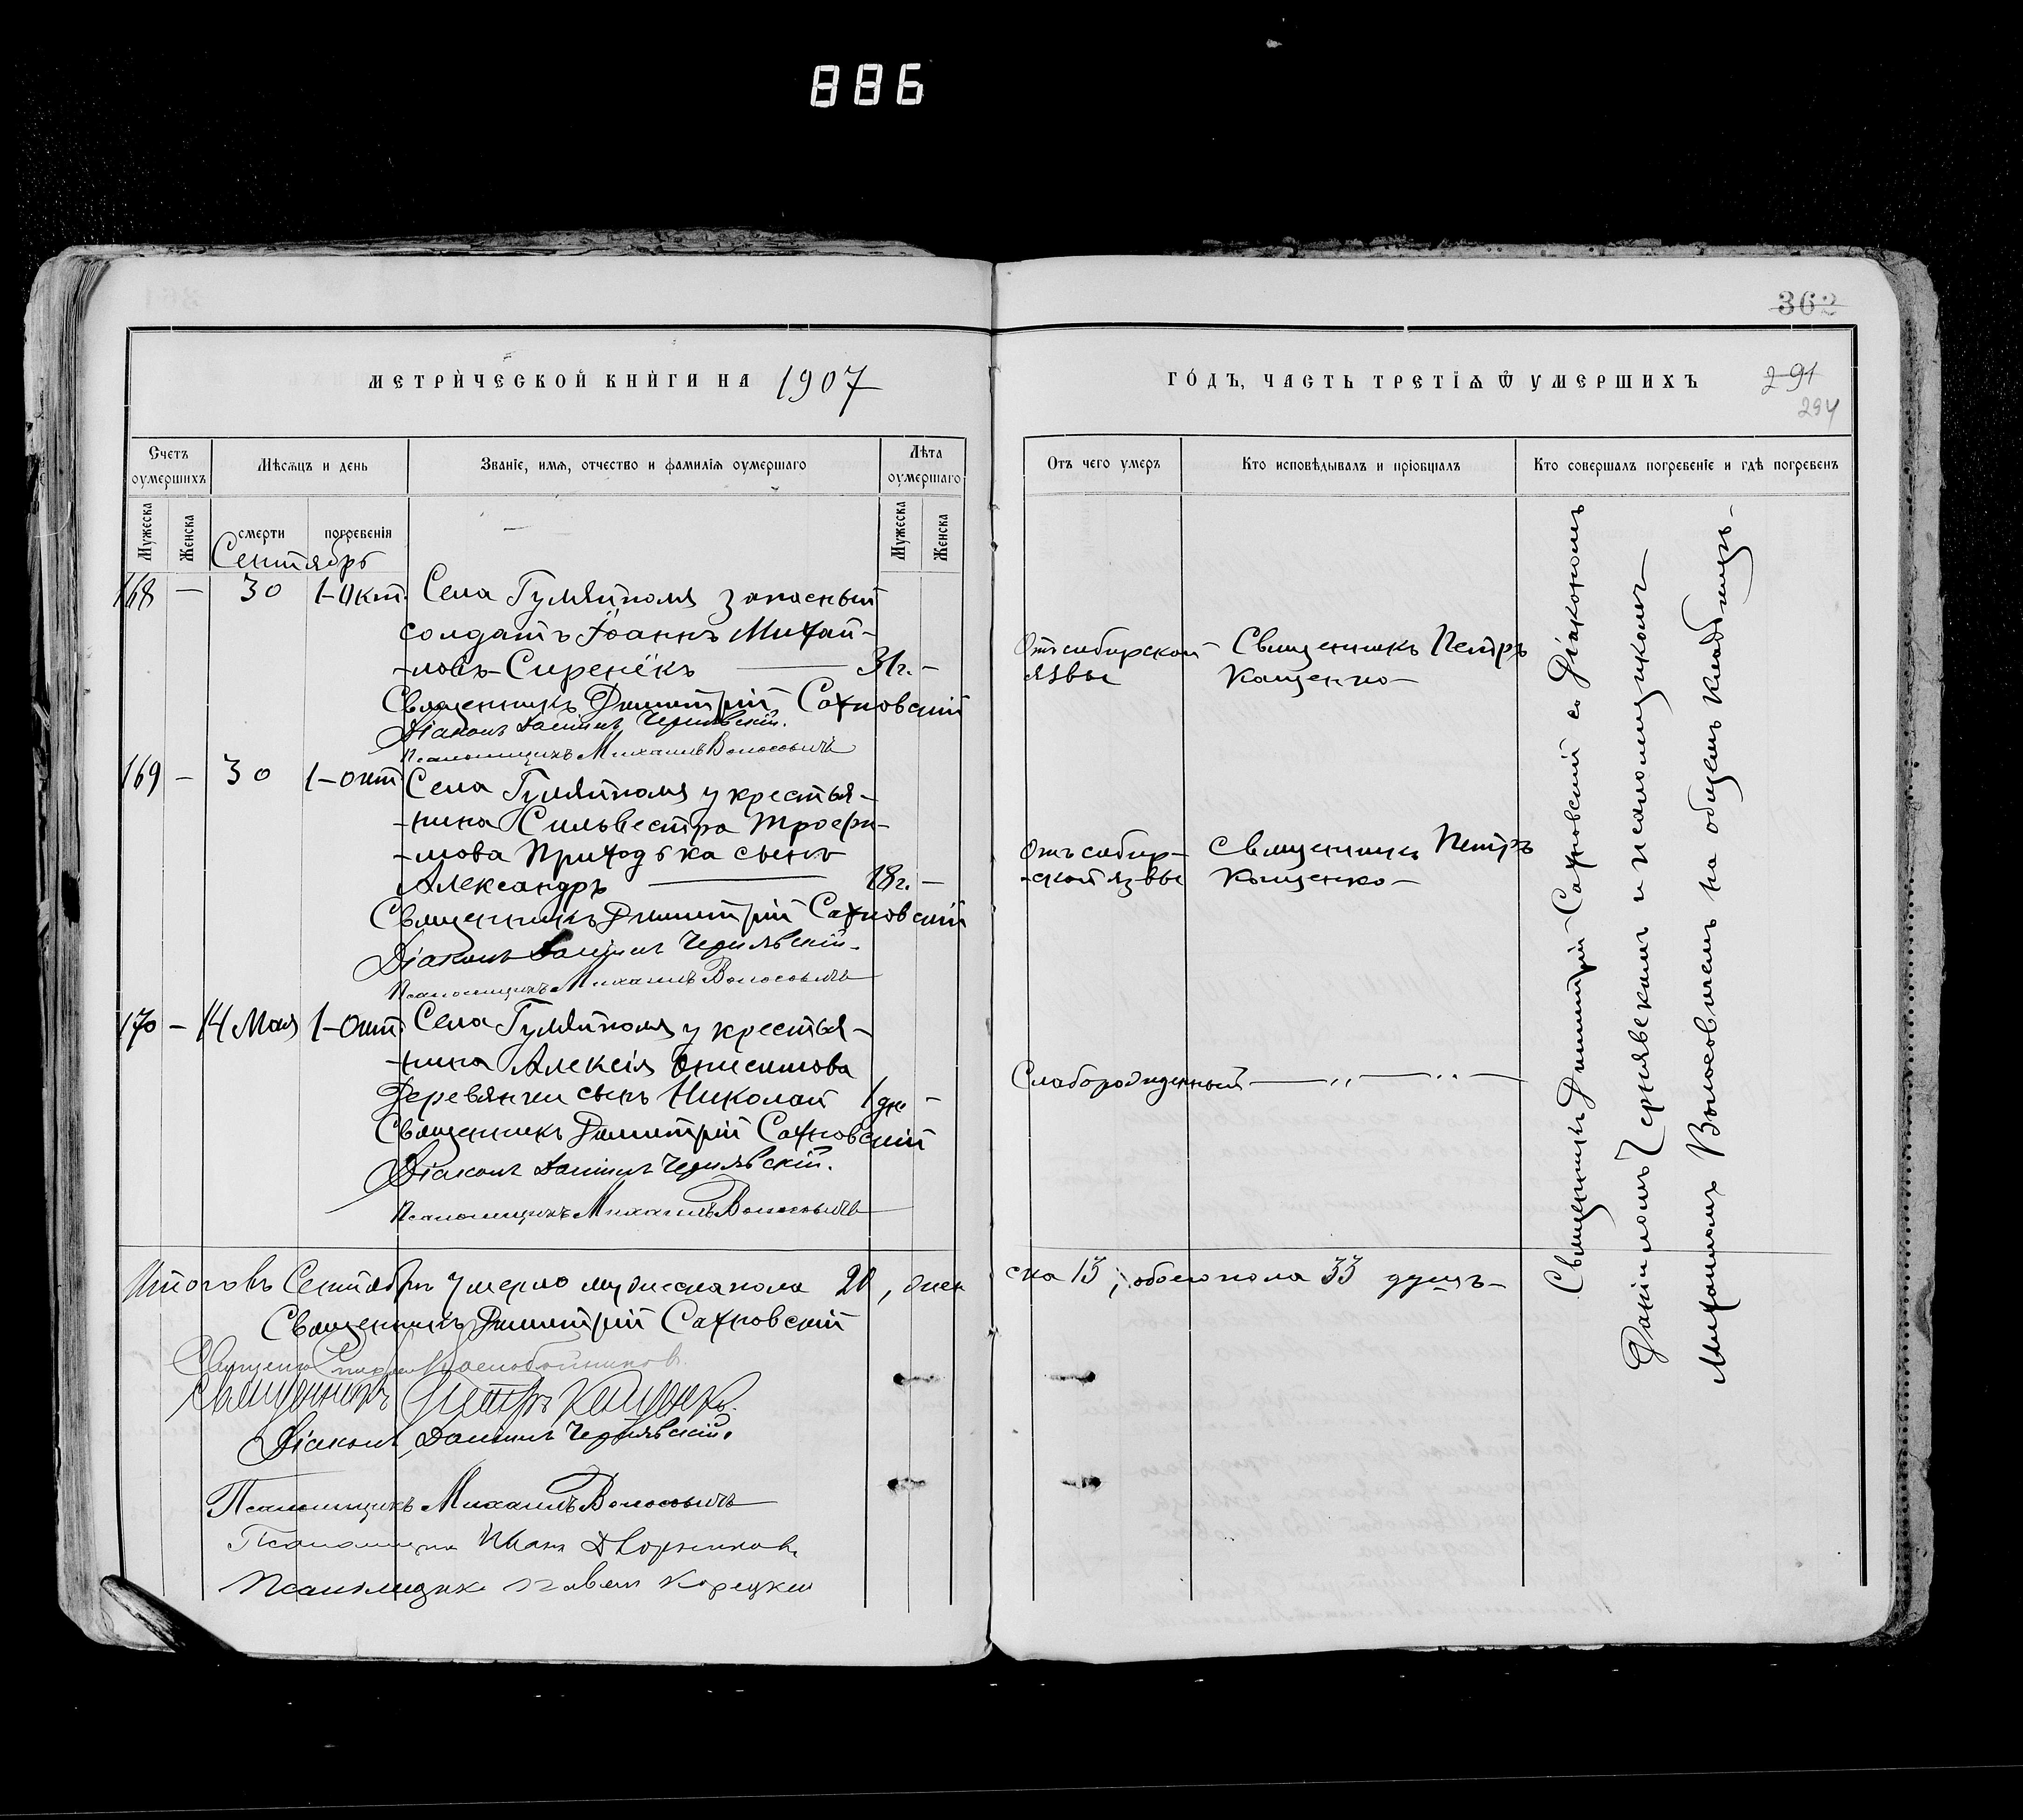 886
362
МЕТРИЧЕСКОЙ КНИГИ НА 1907
ГОДЪ, ЧАСТЬ ТРЕТІѦ Ѿ УМЕРШИХЪ
291
294
Счетъ оумершихъ
Мѣсѧцъ и день
Званіе, имѧ, отчество и фамиліѧ оумершаго
Лѣта оумершаго
Отъ чего умеръ
Кто исповѣдывалъ и пріобщалъ
Кто совершалъ погребеніе и гдѣ погребенъ
Мужеска
Женска
смерти
погребенія
Мужеска
Женска
Сентябрь
168 – 30 1–Окт. Села Гуляйполя запасный
солдатъ Іоаннъ Михай-
-ловъ Сиренёкъ 31г. –
Отъ сибирской
язвы
Священникъ Петръ
Кащенко –
Священникъ Димитрій Сахновскій
Діаконъ Даніилъ Чернявскій.
Псаломщикъ Михаилъ Волосовичъ
169 – 30 1–Окт Села Гуляйполя у крестья-
-нина Сильвестра Трофи-
-мова Приходька сынъ
Александръ 18г. –
Отъ сибир-
-ской язвы
Священникъ Петръ
Кащенко –
Священникъ Димитрій Сахновскій
Діаконъ Даніилъ Чернявскій.
Псаломщикъ Михаилъ Волосовичъ
170 – 14 Мая 1–Окт. Села Гуляйполя у крестья-
-нина Алексія Онисимова
Деревянки сынъ Николай 1 дн. –
Слаборожденный — „ — „ —
Священникъ Димитрій Сахновскій
Діаконъ Даніилъ Чернявскій.
Псаломщикъ Михаилъ Волосовичъ
Священникъ Димитрій Сахновскій съ Діакономъ
Даніиломъ Чернявскимъ и псаломщикомъ
Михаиломъ Волосовичемъ на общемъ кладбищѣ –
Итого въ Сентябрѣ умерло мужеска пола 20, жен
ска 13, обоего пола 33 душъ –
Священникъ Димитрій Сахновскій
Священникъ Петръ Кащенко.
Діаконъ Даніилъ Чернявскій.
Псаломщикъ Михаилъ Волосовичъ
Псаломщикъ Иванъ Дворниковъ
Псаломщикъ Павелъ Корецкій